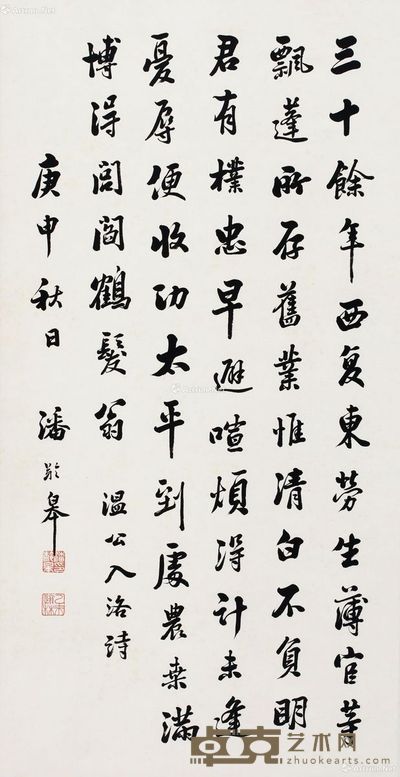 三十餘年西复東勞生薄宦等
飄蓬所存舊業惟清白不負明
君有樸忠早避喧煩得計未逢
憂辱便收功太平到處農桒滿
博得閭閻鶴髮翁 溫公入洛詩
庚申秋日 潘齡皋
卓克艺术网
zhuokearts.com